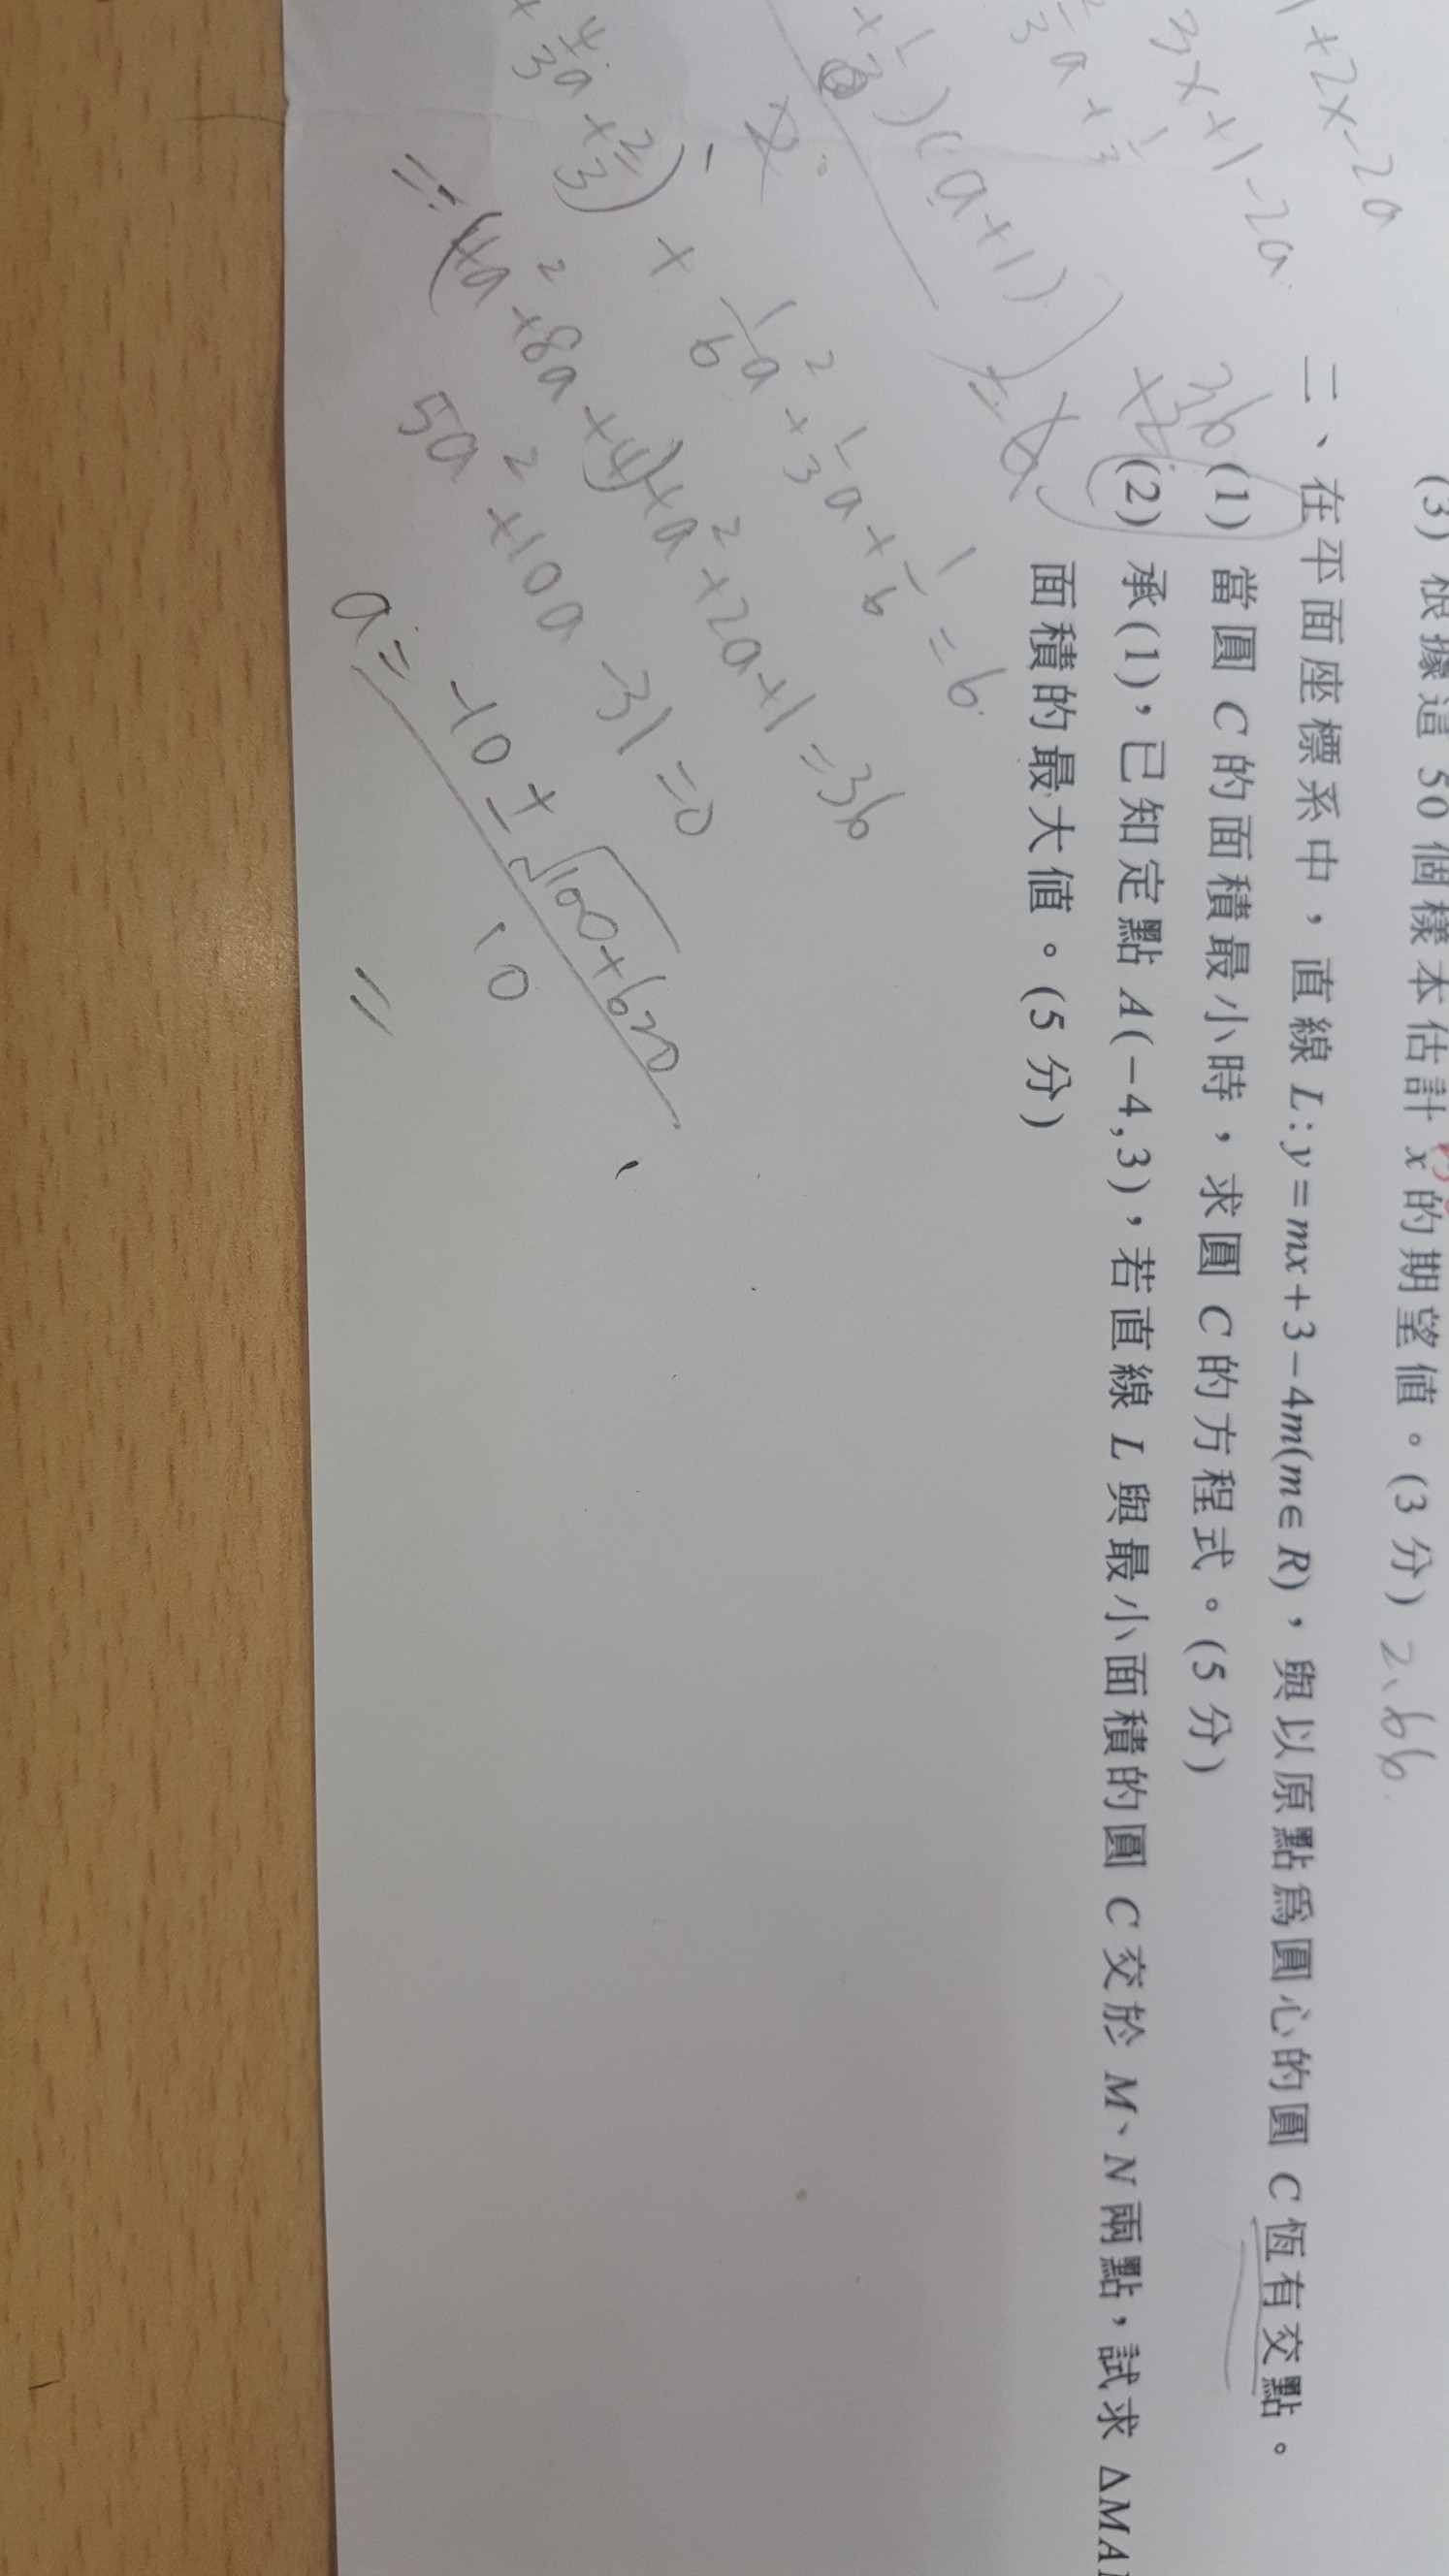 (3) 根據這 50 個樣本估計 x 的期望值。(3 分) 2.66
二、在平面座標系中，直線 L:y=mx+3−4m(m∈R)，與以原點為圓心的圓 C 恆有交點。
(1) 當圓 C 的面積最小時，求圓 C 的方程式。(5 分)
(2) 承(1)，已知定點 A(−4,3)，若直線 L 與最小面積的圓 C 交於 M、N 兩點，試求 ΔMA
面積的最大值。(5 分)
+2x-2a
3x+1-2a
a+1/3
)(a+1)
4/3a+2/3) + 1/6a²+1/3a+1/6=6
=(4a²+8a+4)+a²+2a+1=36
5a²+10a-31=0
a= -10±√100+620 / 10
=